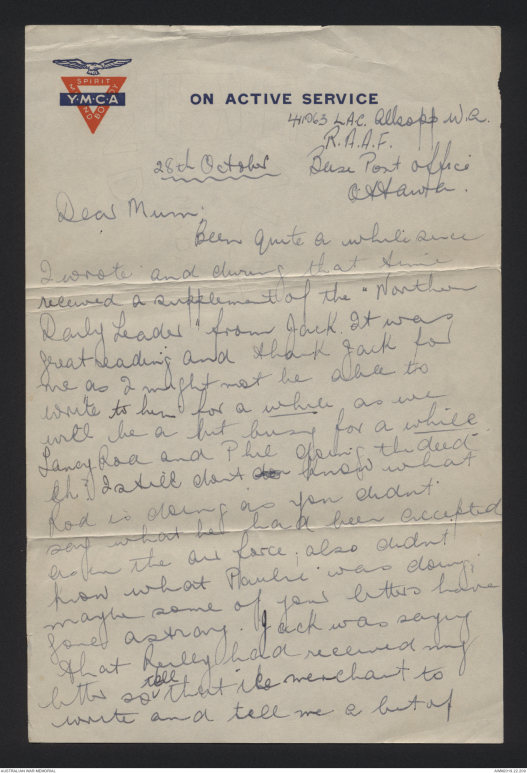 SPIRIT
Y·M·C·A
MIND BODY
ON ACTIVE SERVICE
411063 L.A.C. Allsopp W.A.
R.A.A.F.
28th October Base Post Office
Ottawa.
Dear Mum,
Been quite a while since
I wrote and during that time
received a supplement of the "Northern
Daily Leader" from Jack. It was
great reading and thank Jack for
me as I might not be able to
write to him for a while as we
will be a bit busy for a while.
Fancy Roa and Phil doing the deed
Eh? I still dont know what
Rod is doing as you didnt
say what he had been accepted
as in the air force, also didnt
know what was doing,
maybe some of your letters have
gone astray. Jack was saying
that had received my
letter so tell that merchant to
write and tell me a bit of
AUSTRALIAN WAR MEMORIAL